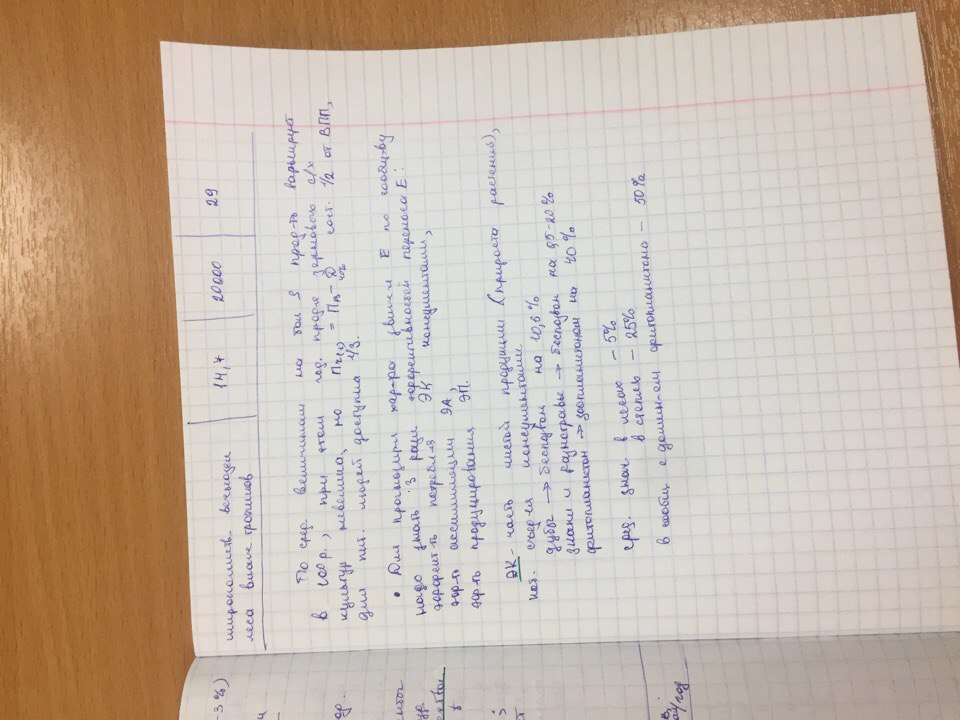 широколиств. вечнозел 14,7 20000 29
леса влаж. тропиков
По сред. величинам на бол S прод-ть варьирует
в 100 р., при этом год. прод-я зернового с/х
культур невелика, но Пчист = Пв – Д сост. 1/2 от ВПП,
для пит. людей доступна 1/3.
• Для прогнозир-я хар-ра движ-я E по сообщ-ву
надо знать 3 разн. эффективностей переноса E:
эффект-ть потребл-я ЭК консументами,
эф-ть ассимиляции ЭА,
эф-ть продуцирования ЭП.
ЭК – часть чистой продукции (прироста растений),
кот. съед-ся консументами
дубы → беспозвон на 10,6%
злаки и разнотравье → беспозвон на 9,5-20%
фитопланктон → зоопланктоном на 40%
сред. знач в лесах – 5%
в степях – 25%
в сообщ. с домин-ем фитопланктона – 50%
-3%)
др.
ур.
ай/год